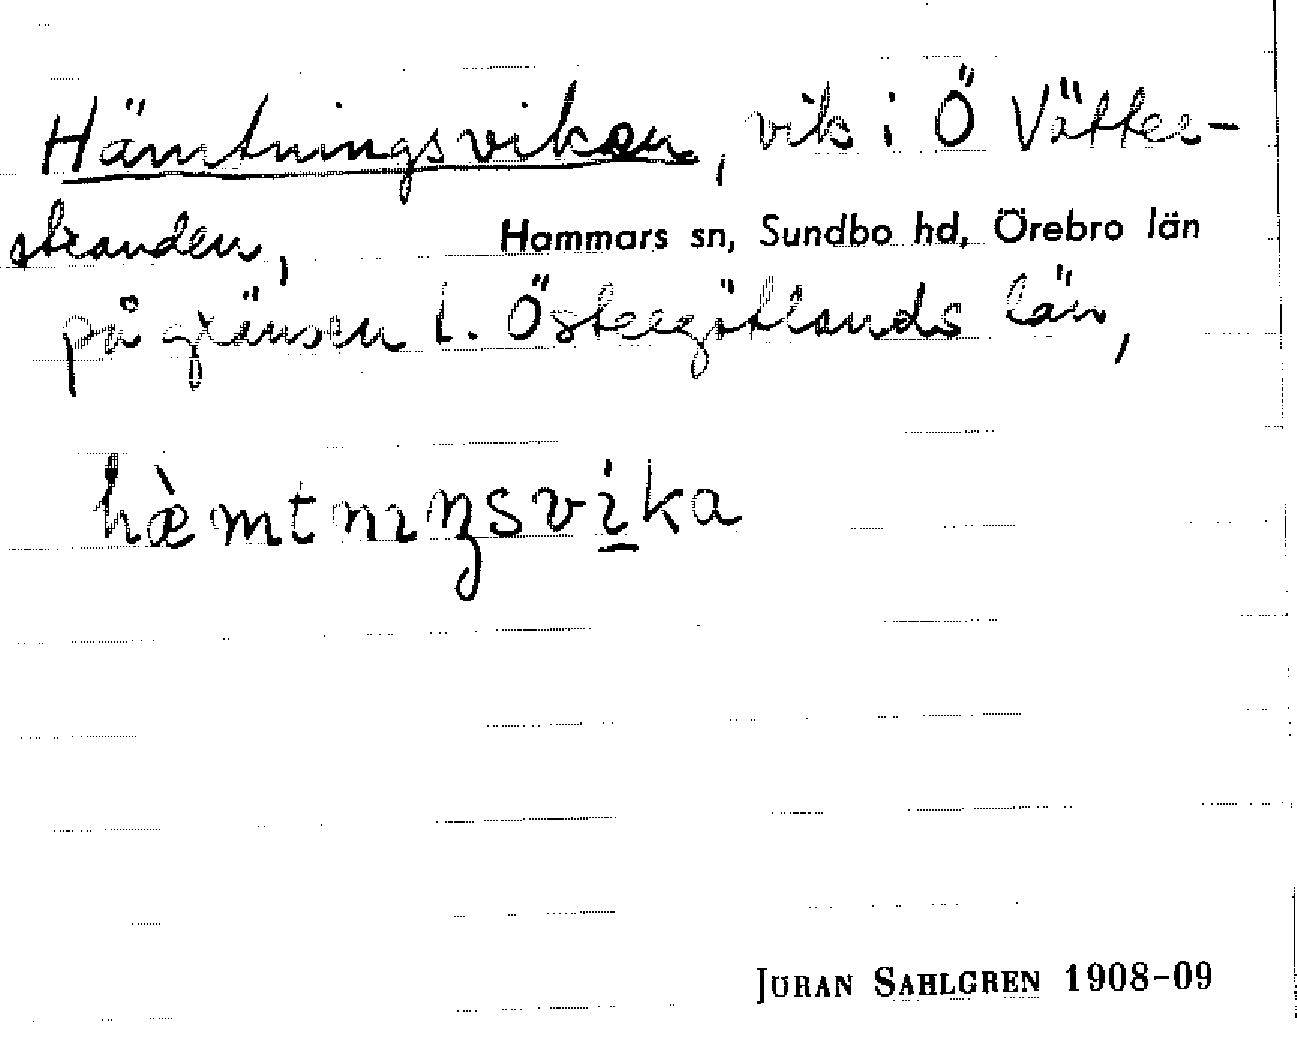 Hämtningsviken, vik i Ö Vätter-
stranden, Hammars sn, Sundbo hd, Örebro län
på gränsen t. Östergötlands län,
hæ̀mtnıŋsvi̲ka
JÖRAN SAHLGREN 1908-09